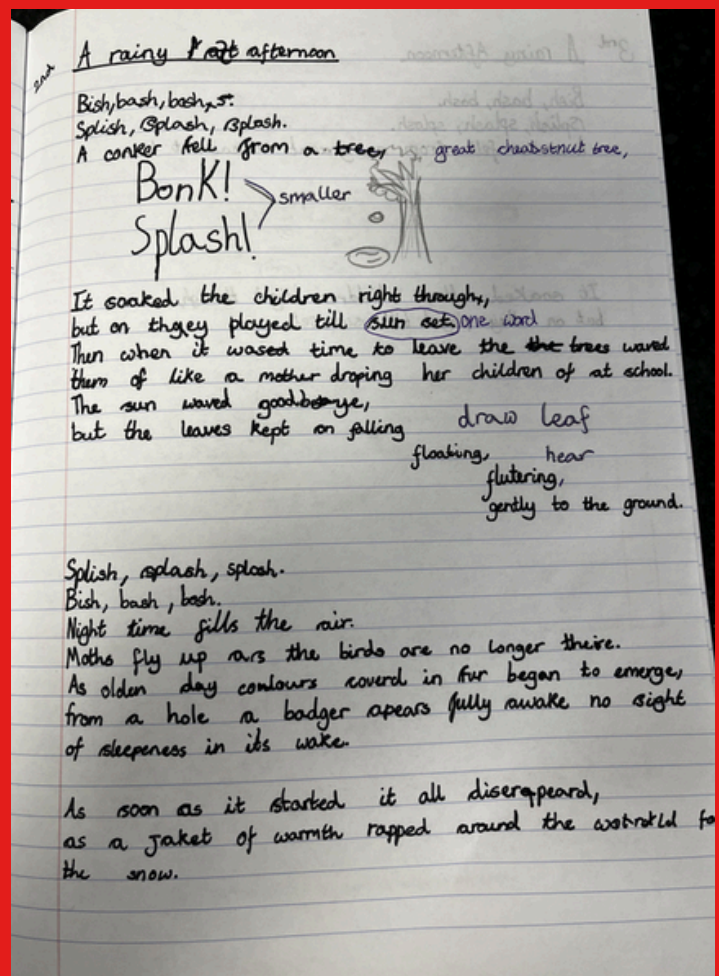 2nd
A rainy afternoon
Bish, bash, bosh.
Splish, Splash, Splosh.
A conker fell from a tree, great cheatstnut tree,
BonK!
smaller
Splash!
It soaked the children right through,
but on they played till sun set, one word
Then when it was time to leave the trees waved
them of like a mother droping her children of at school.
The sun waved goodbye,
but the leaves kept on falling draw leaf
floating, hear
flutering,
gently to the ground.
Splish, splash, splosh.
Bish, bash, bosh.
Night time fills the air.
Moths fly up as the birds are no longer theire.
As olden day coulours coverd in fur began to emerge,
from a hole a badger apears fully awake no sight
of sleepeness in its wake.
As soon as it started it all diserapeard,
as a jaket of warmth rapped around the
the snow.